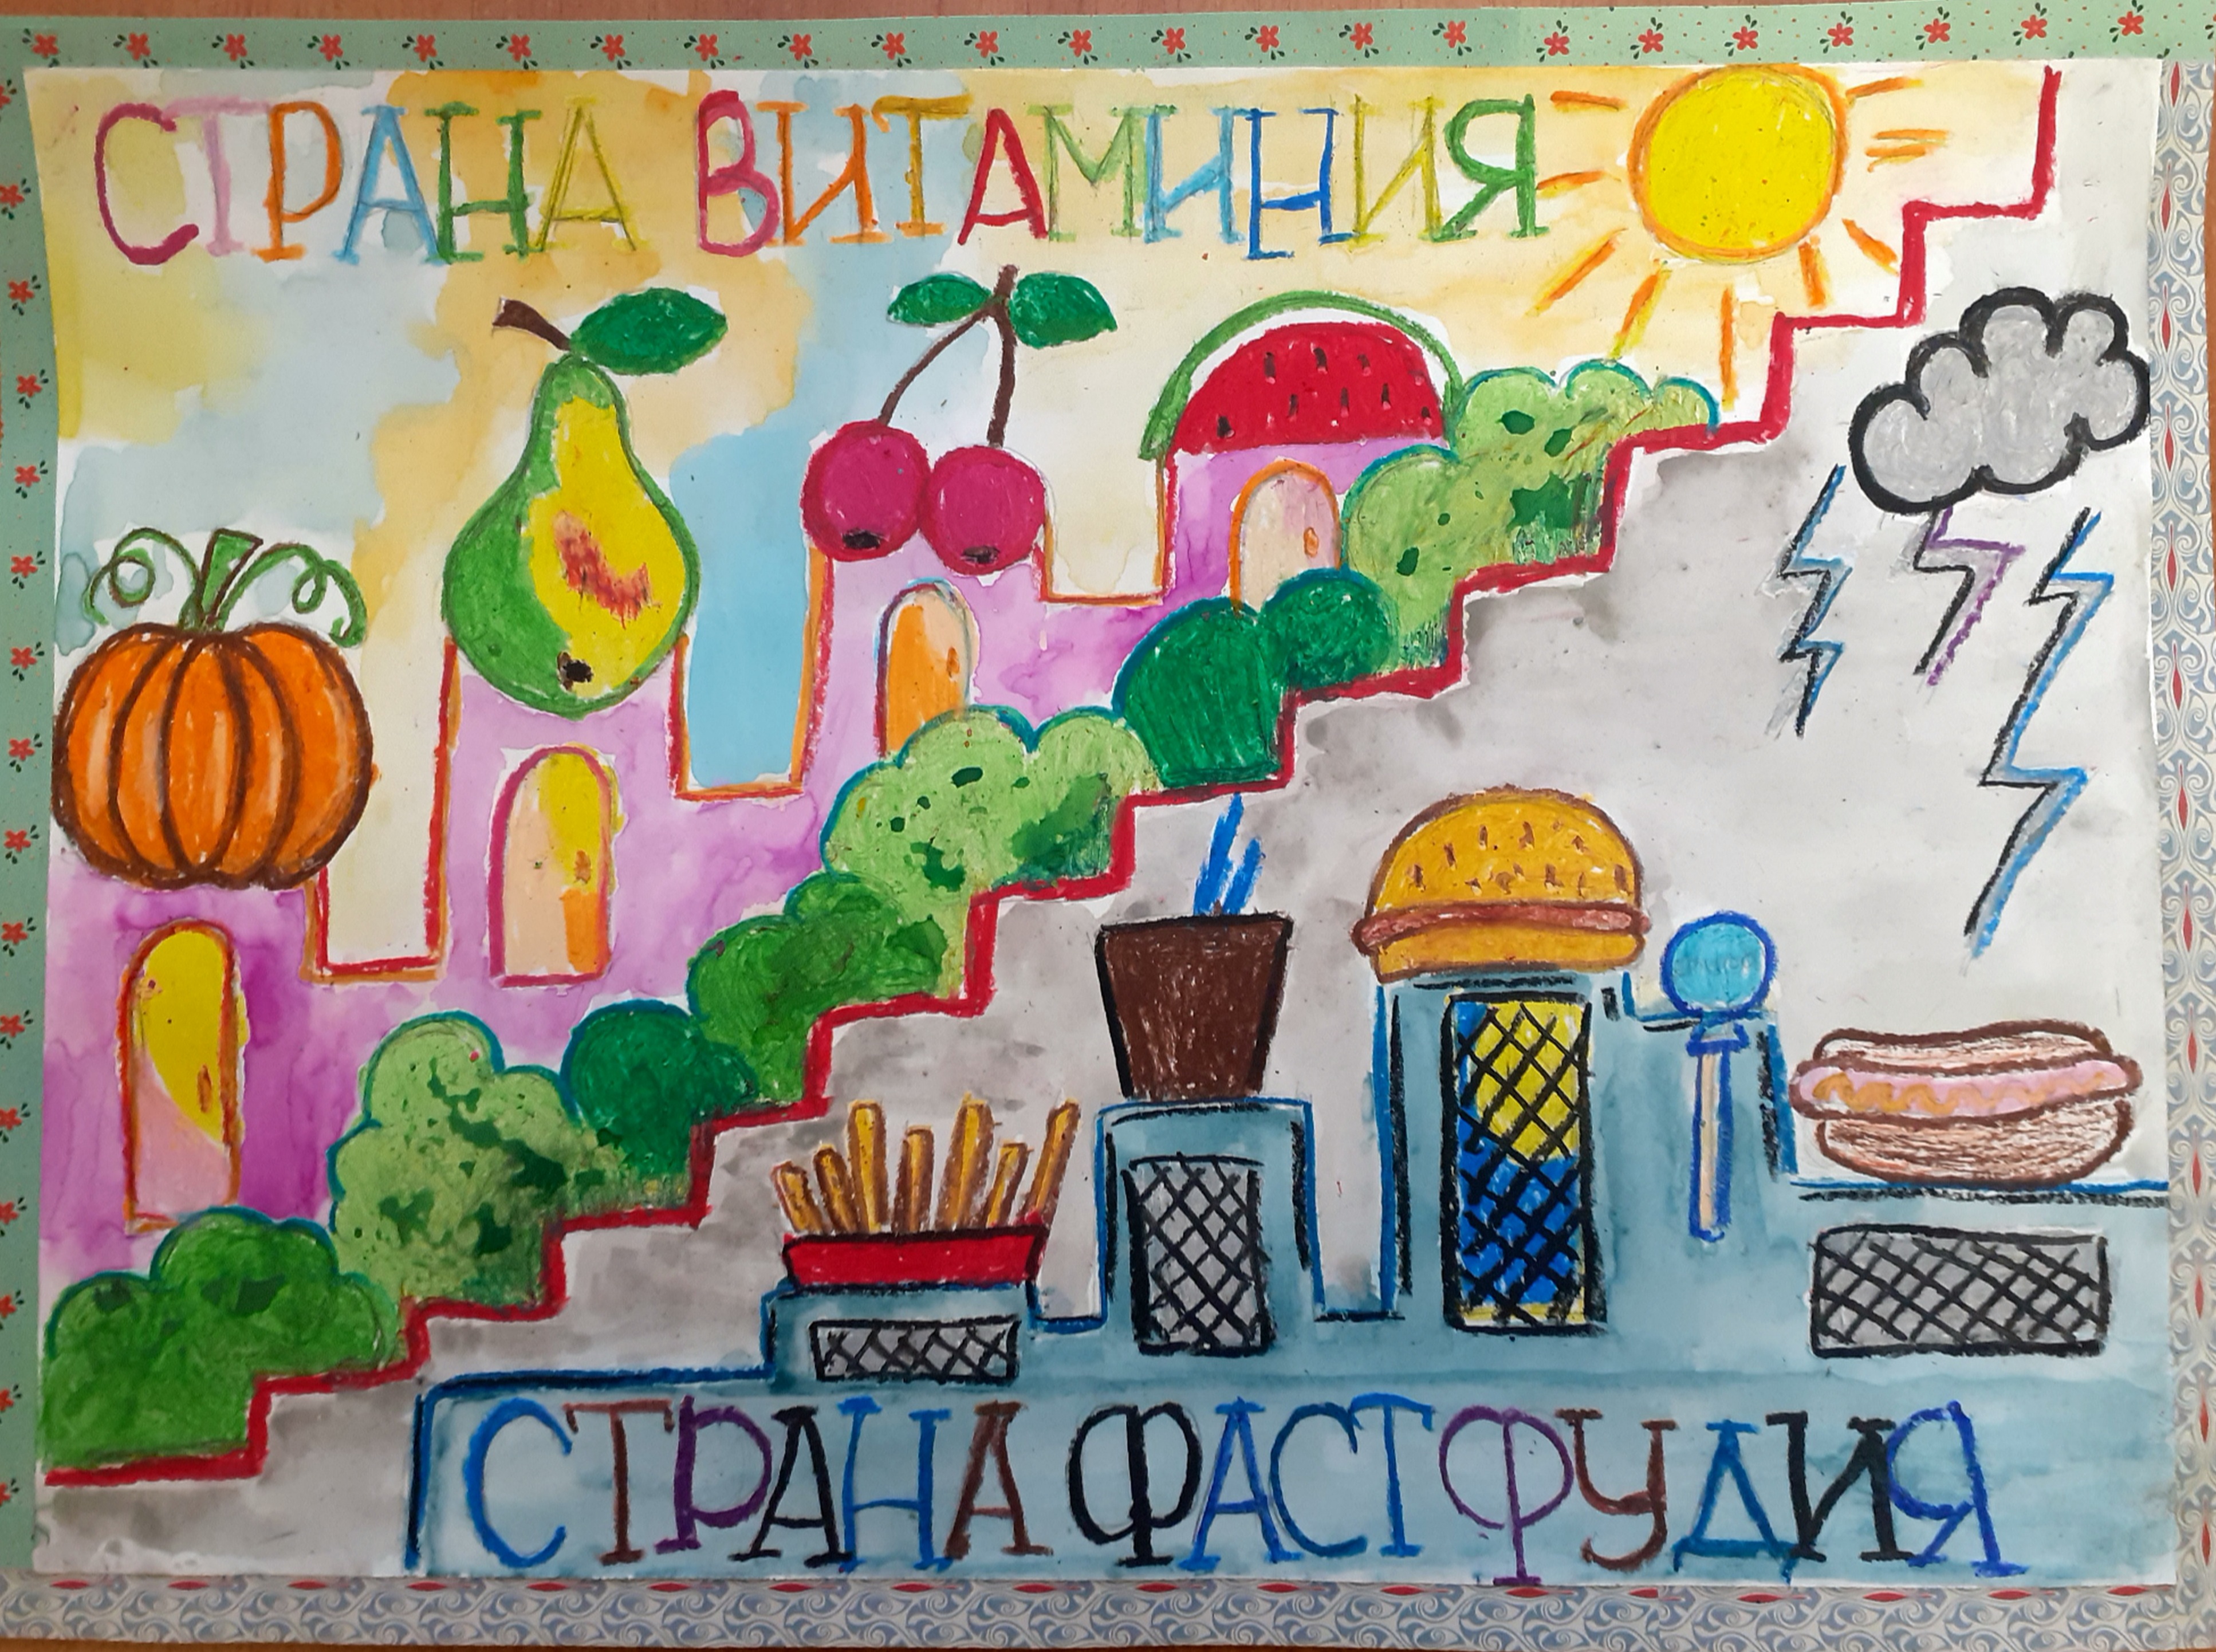 СТРАНА ВИТАМИНИЯ
СТРАНА ФАСТФУДИЯ